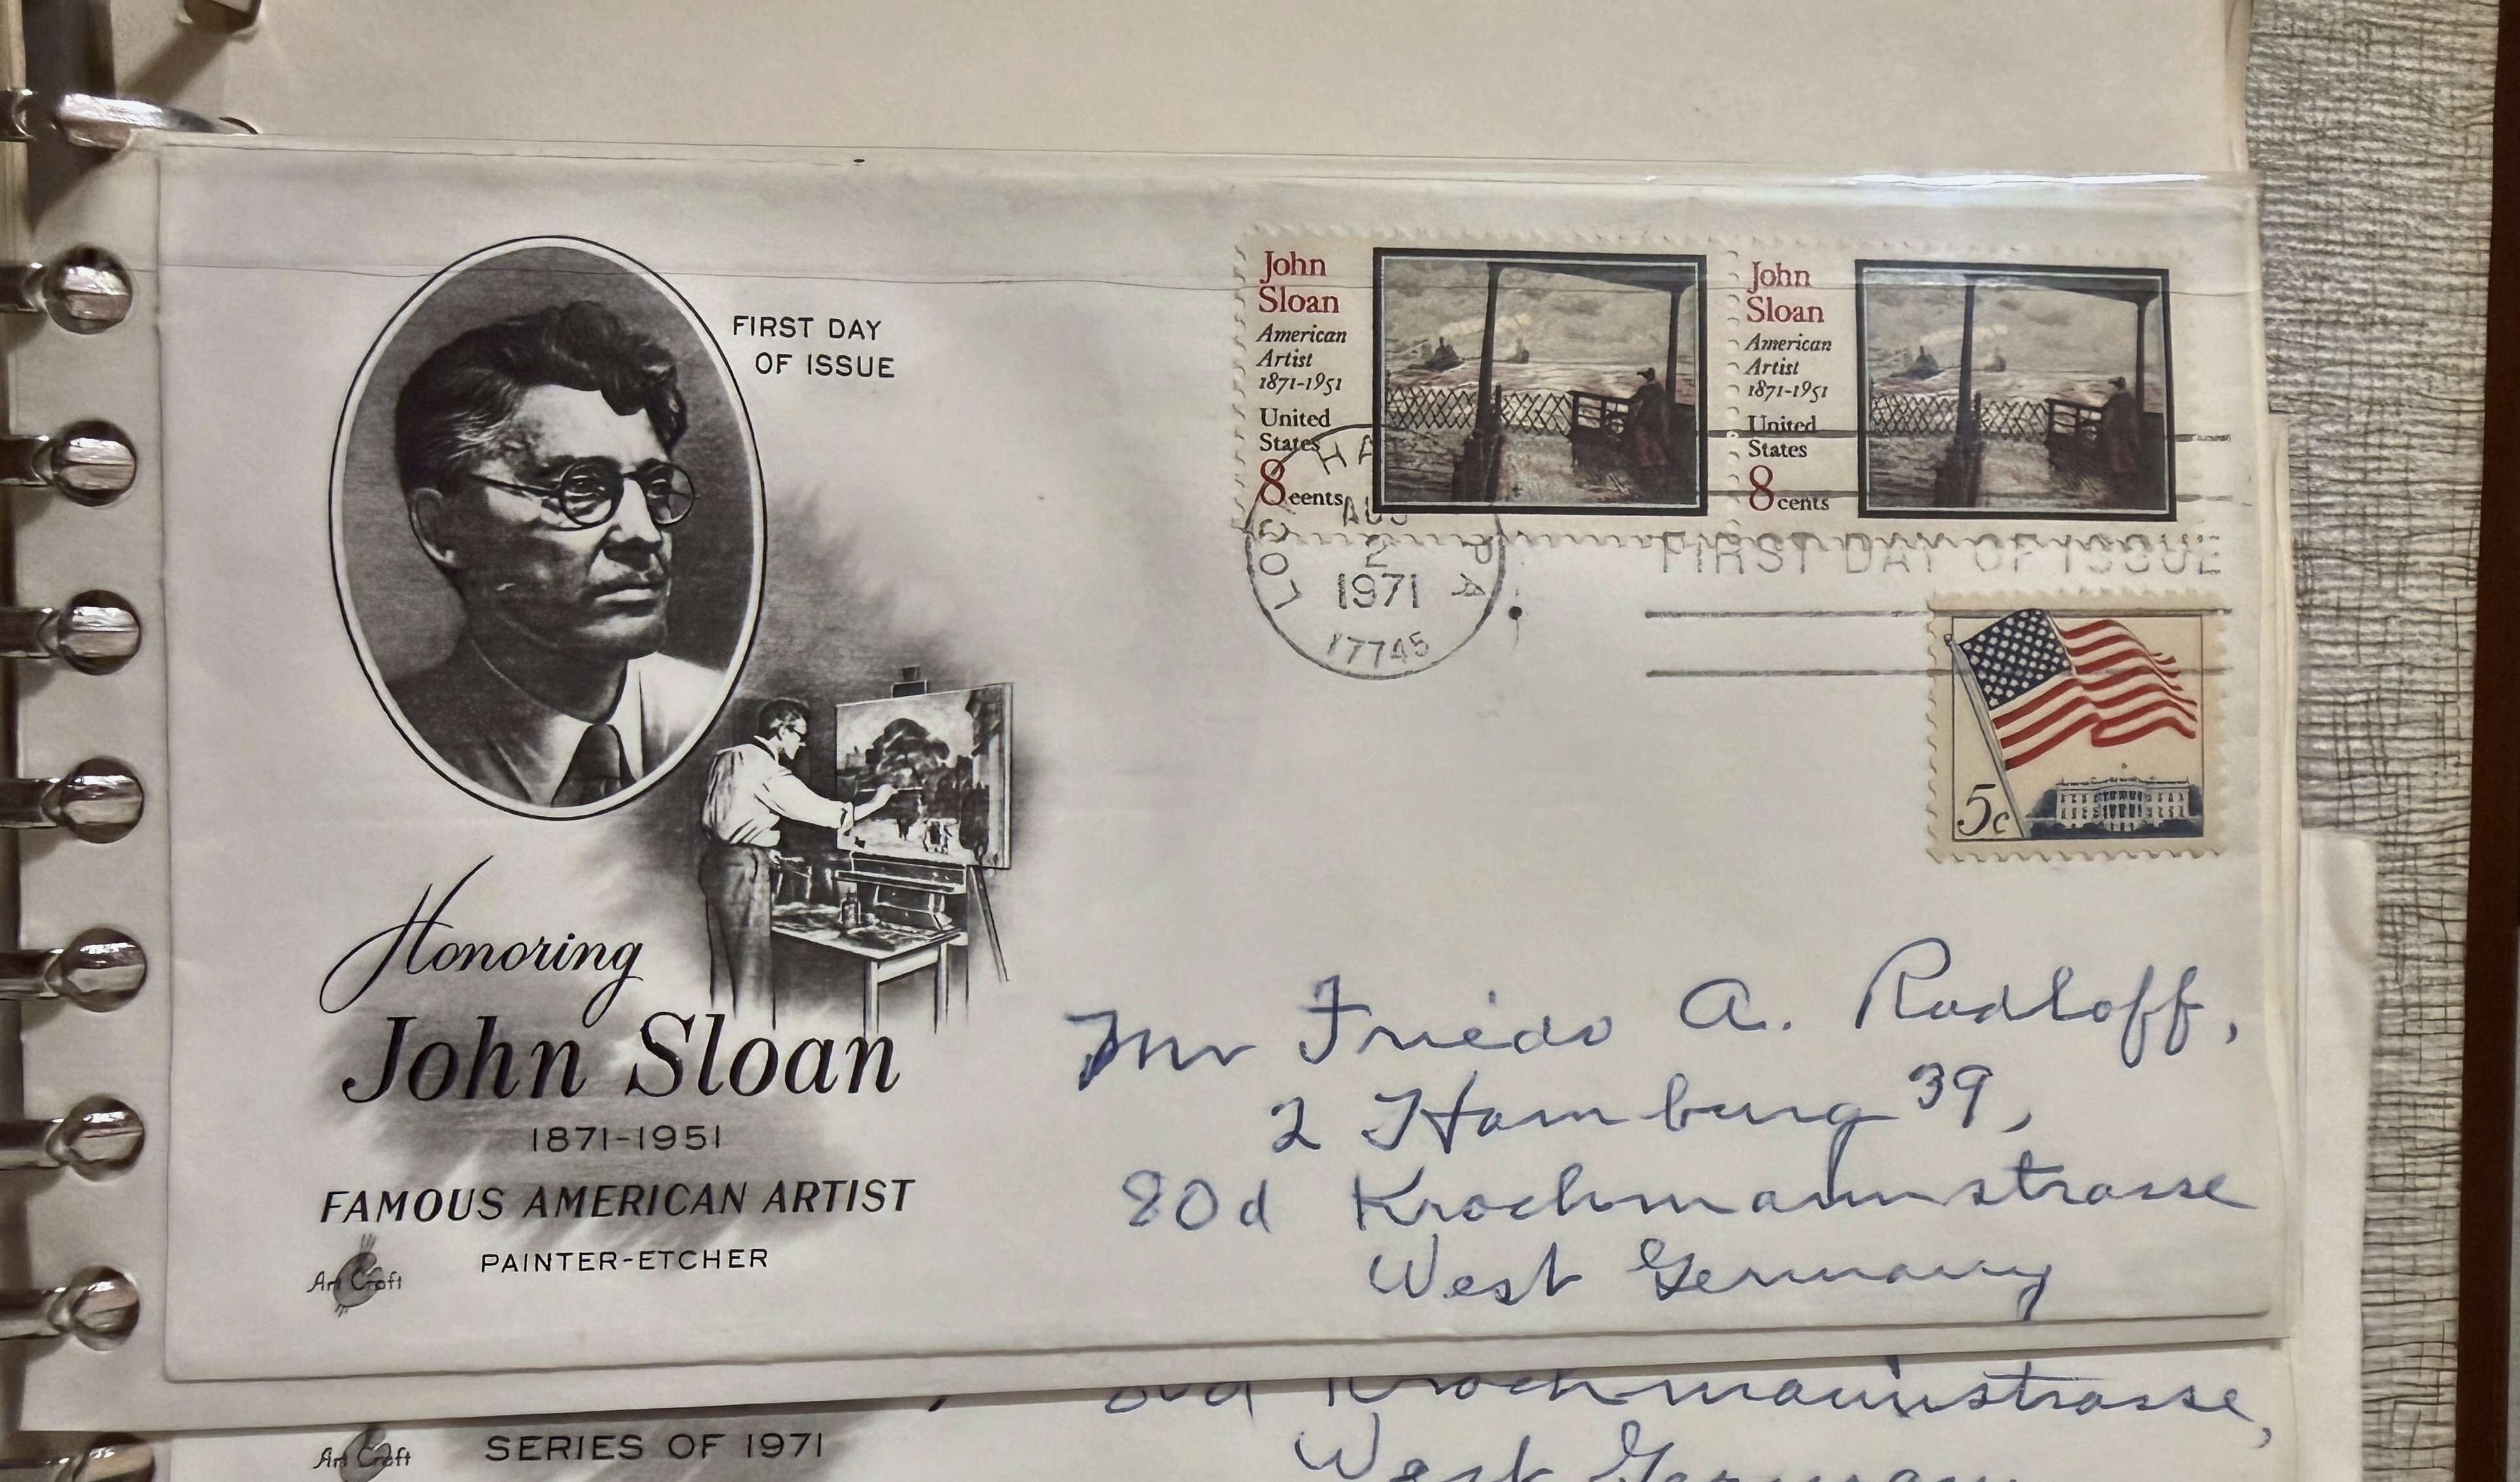 FIRST DAY
OF ISSUE
John
Sloan
American
Artist
1871-1951
United
States
8 cents
John
Sloan
American
Artist
1871-1951
United
States
8 cents
LOCK HA PA
AUG
2
1971
17745
FIRST DAY OF ISSUE
5c
Honoring
John Sloan
1871-1951
FAMOUS AMERICAN ARTIST
PAINTER-ETCHER
Art Craft
Mr Friedo A. Radloff,
2 Hamburg 39,
80d Krochmannstrasse
West Germany
80d Krochmannstrasse,
West Germany
Art Craft
SERIES OF 1971